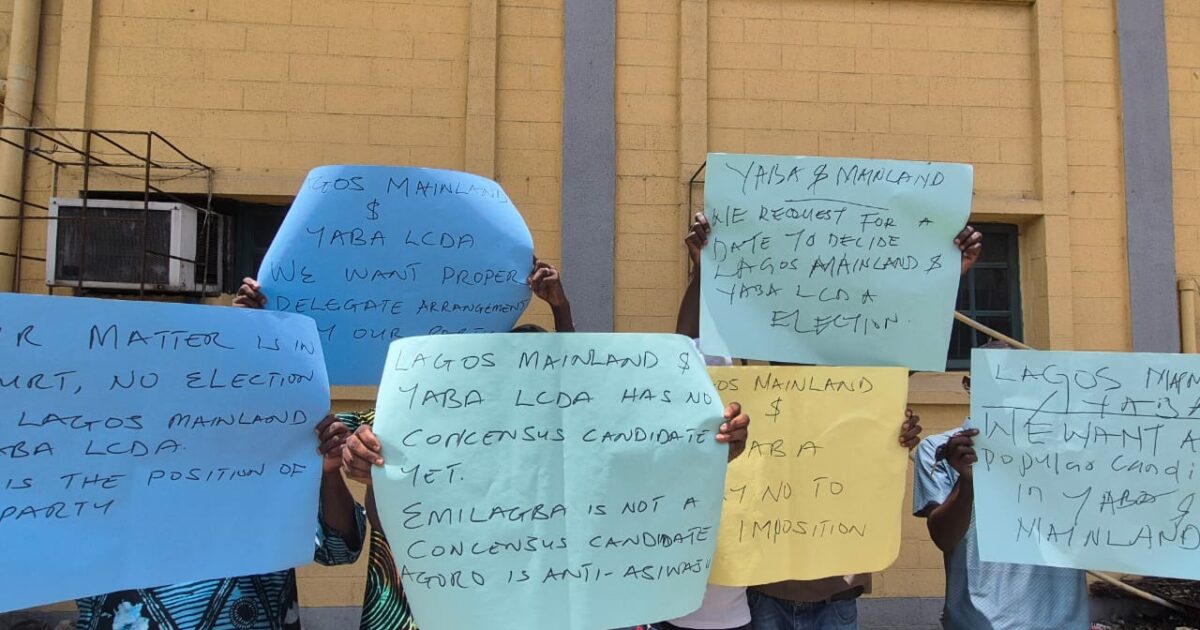 LAGOS MAINLAND
$
YABA LCDA
WE WANT PROPER
DELEGATE ARRANGEMENT
OUR
YABA $ MAINLAND
WE REQUEST FOR A
DATE TO DECIDE
LAGOS MAINLAND $
YABA LCDA
ELECTION.
MATTER IS IN
NO ELECTION
LAGOS MAINLAND
LCDA.
IS THE POSITION OF
PARTY
LAGOS MAINLAND $
YABA LCDA HAS NO
CONCENSUS CANDIDATE
YET.
EMILAGBA IS NOT A
CONCENSUS CANDIDATE
AGORO IS ANTI-ASIWAJU
MAINLAND
$
NO TO
IMPOSITION
LAGOS
WE WANT A
Popular
in YABA $
MAINLAND